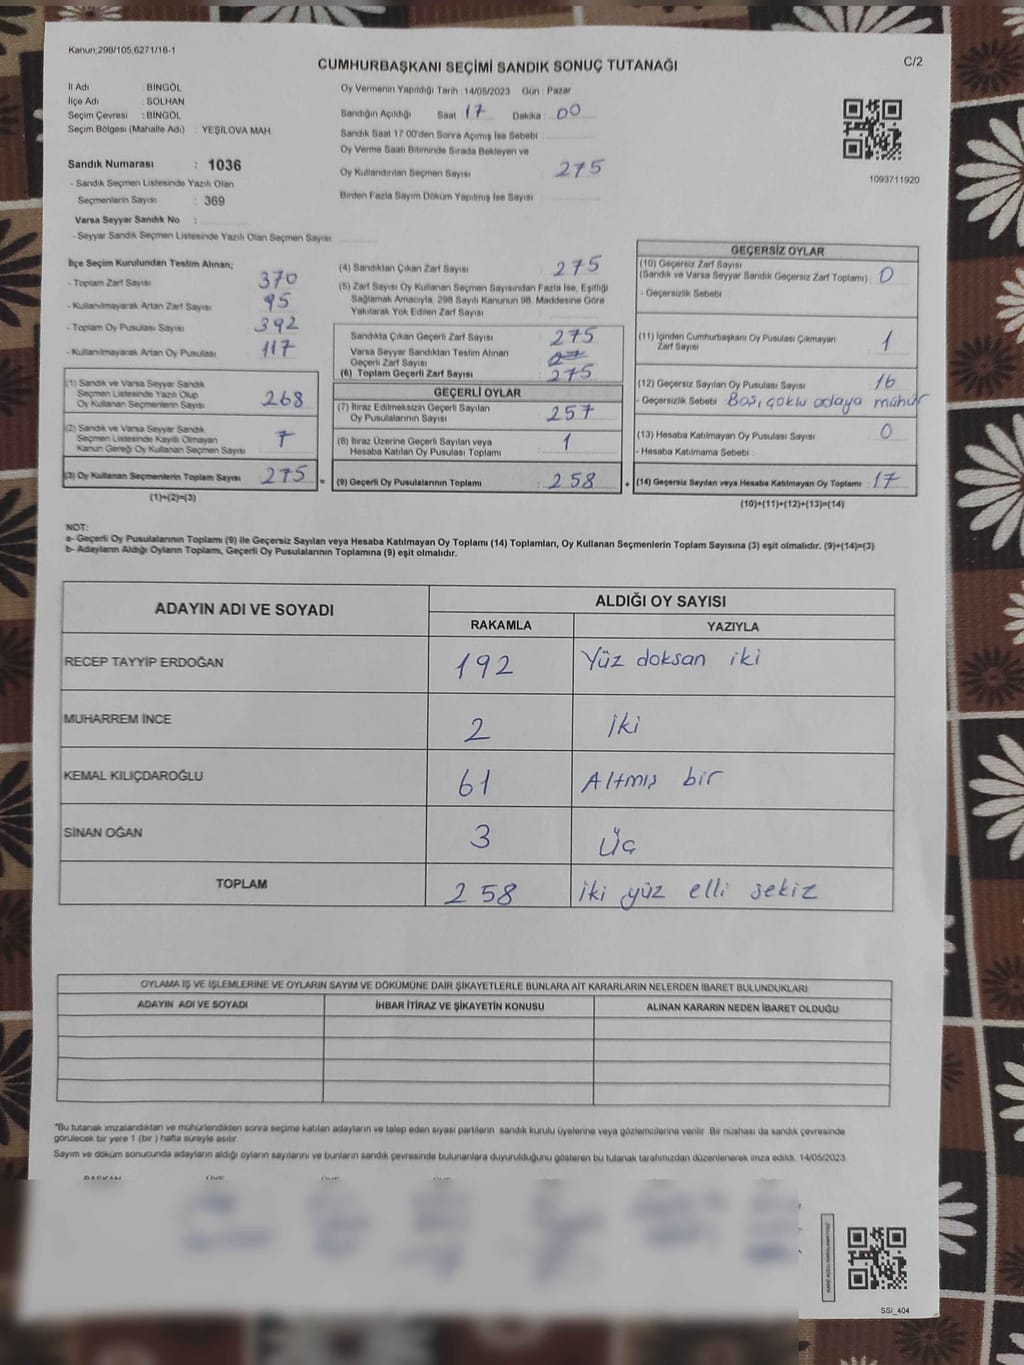 Kanun;298/105,6271/18-1
CUMHURBAŞKANI SEÇİMİ SANDIK SONUÇ TUTANAĞI
C/2
İl Adı : BİNGÖL
İlçe Adı : SOLHAN
Seçim Çevresi : BİNGÖL
Seçim Bölgesi (Mahalle Adı) : YEŞİLOVA MAH.
Sandık Numarası : 1036
- Sandık Seçmen Listesinde Yazılı Olan
Seçmenlerin Sayısı : 369
Varsa Seyyar Sandık No :
- Seyyar Sandık Seçmen Listesinde Yazılı Olan Seçmen Sayısı
Oy Vermenin Yapıldığı Tarih : 14/05/2023 Gün : Pazar
Sandığın Açıldığı Saat : 17 Dakika : 00
Sandık Saat 17:00'den Sonra Açımış İse Sebebi :
Oy Verme Saati Bitiminde Sırada Bekleyen ve
Oy Kullandırılan Seçmen Sayısı : 275
Birden Fazla Sayım Döküm Yapılmış İse Sayısı :
1093711920
İlçe Seçim Kurulundan Teslim Alınan;
- Toplam Zarf Sayısı : 370
- Kullanılmayarak Artan Zarf Sayısı : 95
- Toplam Oy Pusulası Sayısı : 392
- Kullanılmayarak Artan Oy Pusulası : 117
(1) Sandık ve Varsa Seyyar Sandık
Seçmen Listesinde Yazılı Olup
Oy Kullanan Seçmenlerin Sayısı : 268
(2) Sandık ve Varsa Seyyar Sandık
Seçmen Listesinde Kayıtlı Olmayan
Kanun Gereği Oy Kullanan Seçmen Sayısı : 7
(3) Oy Kullanan Seçmenlerin Toplam Sayısı : 275 =
(1)+(2)=(3)
(4) Sandıktan Çıkan Zarf Sayısı : 275
(5) Zarf Sayısı Oy Kullanan Seçmen Sayısından Fazla İse, Eşitliği
Sağlamak Amacıyla, 298 Sayılı Kanunun 98. Maddesine Göre
Yakılarak Yok Edilen Zarf Sayısı :
Sandıkta Çıkan Geçerli Zarf Sayısı : 275
Varsa Seyyar Sandıktan Teslim Alınan
Geçerli Zarf Sayısı :
(6) Toplam Geçerli Zarf Sayısı : 275
GEÇERLİ OYLAR
(7) İtiraz Edilmeksizin Geçerli Sayılan
Oy Pusulalarının Sayısı : 257
(8) İtiraz Üzerine Geçerli Sayılan veya
Hesaba Katılan Oy Pusulası Toplamı : 1
(9) Geçerli Oy Pusulalarının Toplamı : 258 +
GEÇERSİZ OYLAR
(10) Geçersiz Zarf Sayısı : 0
(Sandık ve Varsa Seyyar Sandık Geçersiz Zarf Toplamı)
- Geçersizlik Sebebi :
(11) İçinden Cumhurbaşkanı Oy Pusulası Çıkmayan
Zarf Sayısı : 1
(12) Geçersiz Sayılan Oy Pusulası Sayısı : 16
- Geçersizlik Sebebi : Boş, çoklu adaya mühür
(13) Hesaba Katılmayan Oy Pusulası Sayısı : 0
- Hesaba Katılmama Sebebi :
(14) Geçersiz Sayılan veya Hesaba Katılmayan Oy Toplamı : 17
(10)+(11)+(12)+(13)=(14)
NOT:
a- Geçerli Oy Pusulalarının Toplamı (9) ile Geçersiz Sayılan veya Hesaba Katılmayan Oy Toplamı (14) Toplamları, Oy Kullanan Seçmenlerin Toplam Sayısına (3) eşit olmalıdır. (9)+(14)=(3)
b- Adayların Aldığı Oyların Toplamı, Geçerli Oy Pusulalarının Toplamına (9) eşit olmalıdır.
ADAYIN ADI VE SOYADI ALDIĞI OY SAYISI
RAKAMLA YAZIYLA
RECEP TAYYİP ERDOĞAN 192 Yüz doksan iki
MUHARREM İNCE 2 İki
KEMAL KILIÇDAROĞLU 61 Altmış bir
SİNAN OĞAN 3 Üç
TOPLAM 258 iki yüz elli sekiz
OYLAMA İŞ VE İŞLEMLERİNE VE OYLARIN SAYIM VE DÖKÜMÜNE DAİR ŞİKAYETLERLE BUNLARA AİT KARARLARIN NELERDEN İBARET BULUNDUKLARI
ADAYIN ADI VE SOYADI İHBAR İTİRAZ VE ŞİKAYETİN KONUSU ALINAN KARARIN NEDEN İBARET OLDUĞU
*Bu tutanak imzalandıktan ve mühürlendikten sonra seçime katılan adayların ve talep eden siyasi partilerin sandık kurulu üyelerine veya gözlemcilerine verilir. Bir nüshası da sandık çevresinde
görülecek bir yere 1 (bir ) hafta süreyle asılır.
Sayım ve döküm sonucunda adayların aldığı oyların sayılarını ve bunların sandık çevresinde bulunanlara duyurulduğunu gösteren bu tutanak tarafımızdan düzenlenerek imza edildi. 14/05/2023
BAŞKAN ÜYE ÜYE ÜYE
SSI_404